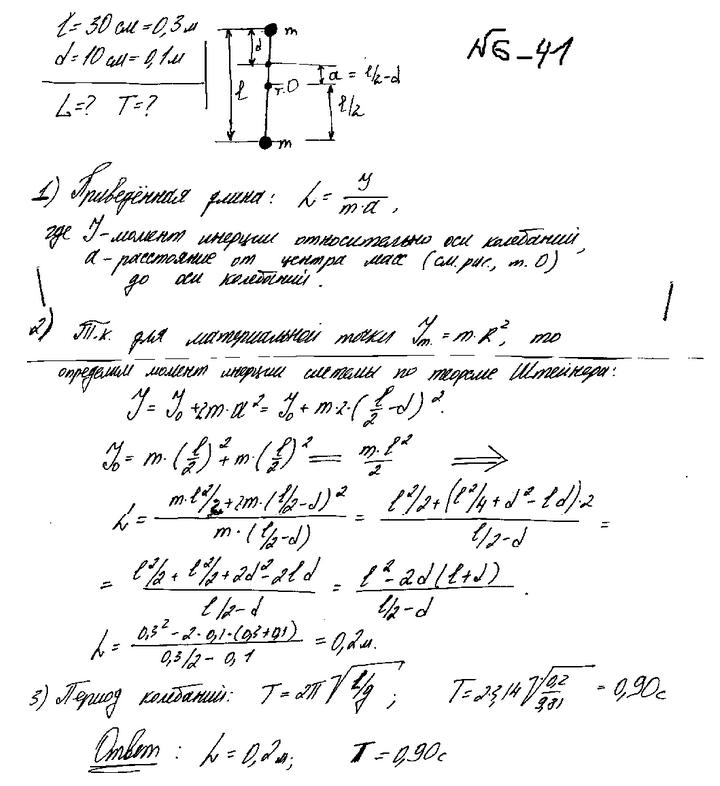 l = 30 см = 0,3 м
d = 10 см = 0,1 м
L = ? T = ?
m
d
a = l/2-d
т.О
l
l/2
m
№6-41
1) Приведённая длина: L = J/(m·a),
где J - момент инерции относительно оси колебаний,
a - расстояние от центра масс (см. рис., т. О)
до оси колебаний.
2) Т.к. для материальной точки Jт. = m·R², то
определим момент инерции системы по теореме Штейнера:
J = J₀ + 2m·a² = J₀ + m·2·(l/2 - d)².
J₀ = m·(l/2)² + m·(l/2)² = m·l²/2 ⟹
L = (m·l²/2 + 2m·(l/2-d)²)/(m·(l/2-d)) = (l²/2 + (l²/4 + d² - ld)·2)/(l/2-d) =
= (l²/2 + l²/2 + 2d² - 2ld)/(l/2-d) = (l² - 2d(l+d))/(l/2-d).
L = (0,3² - 2·0,1·(0,3+0,1))/(0,3/2 - 0,1) = 0,2 м.
3) Период колбаний: T = 2π√(L/g); T = 2·3,14√(0,2/9,81) = 0,90 с
Ответ: L = 0,2 м; T = 0,90 с